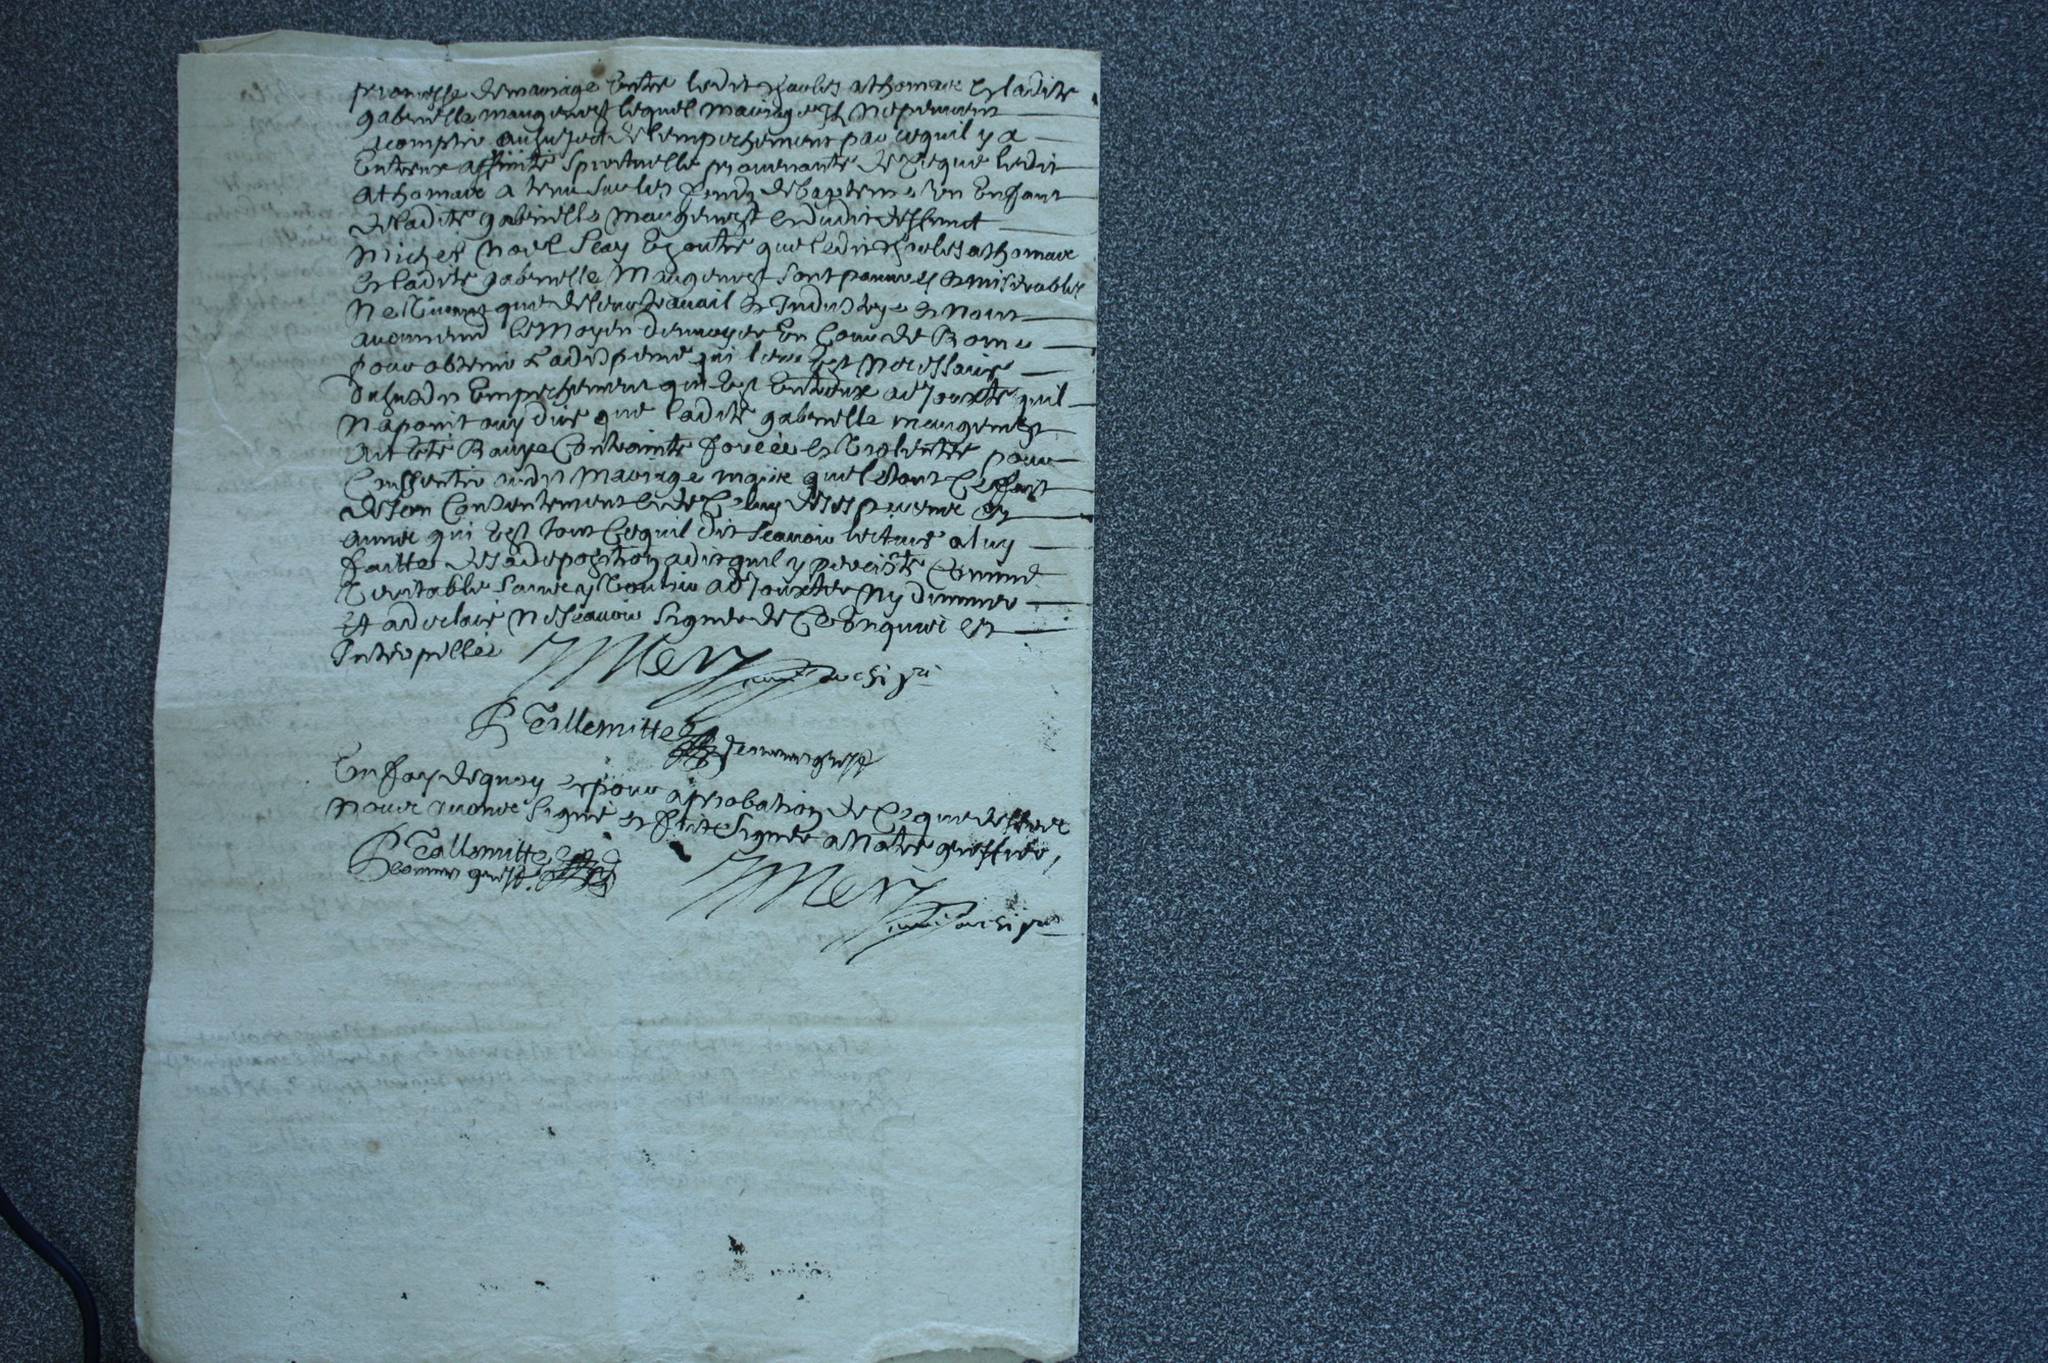 promesse de mariage Entre ledit Charles athomare Et ladite
gabrielle maugenest lequel Mariage Ils Ne peuvent
acomplir au sujet de lempechement par cequil y a
Entreux affinité spirituelle provenante de ce que ledit
athomare a tenu sur les fonds de bapteme un Enfant
de ladite gabrielle Maugenest Et dudit deffunct
Michel Noel scay Egoutre que ledit Charles athomare
Et ladite gabrielle Maugenest sont pauvres Et miserables
Ne Vivans que de leur travail Et Industrye Et Nont
aucunemt le Moyen denvoyer En Cour de Rome
pour obtenir la dispense qui leur Est Necessaire
dudit Empechement qui Est Entreux adjouxte quil
Na point ouy dire que ladite gabrielle maugenest
Ait Eté Ravye Contrainte forcée Et Violentée pour
Consentir audit Mariage mais que Cest
de son Consentement Et de Celuy de ses parens Et
amis qui Est tout Cequil dit scavoir lecture a luy
faitte de sa deposition a dit quil y persiste Comme
Veritable sans y Vouloir adjouxter Ny diminuer
Et a declaré Ne scavoir signer de Ce Enquis Et
Interpellé
Mery
Tillemitte
En foy de quoy Et pour aprobation de Ce que dessus
Nous avons signé Et fait signer a Notre greffier,
Tallemitte
Mery